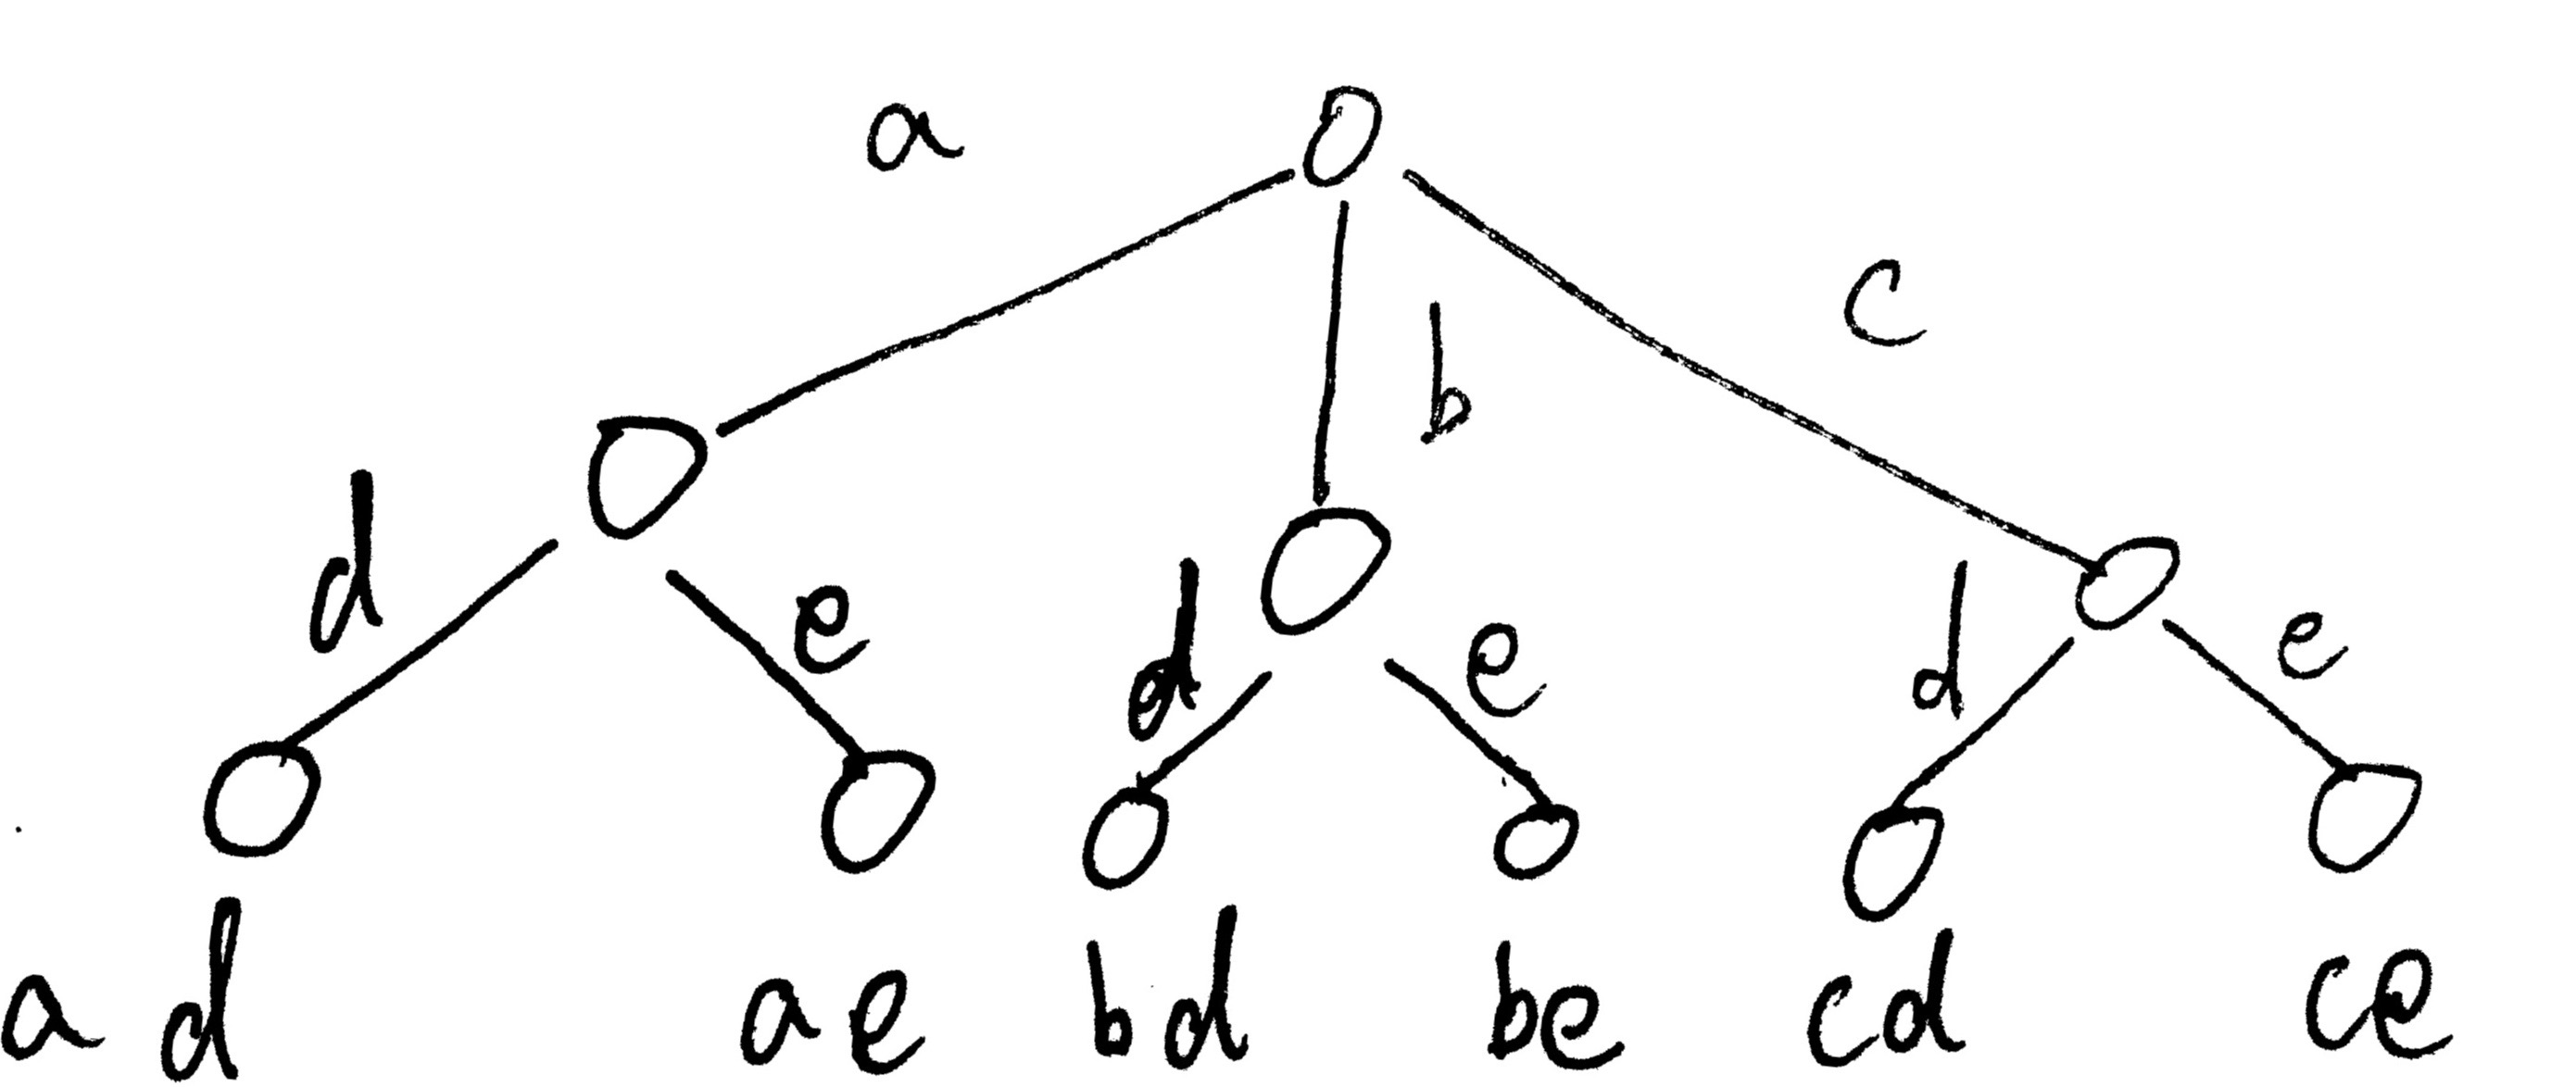 a
c
b
d e d e d e
ad ae bd be cd ce